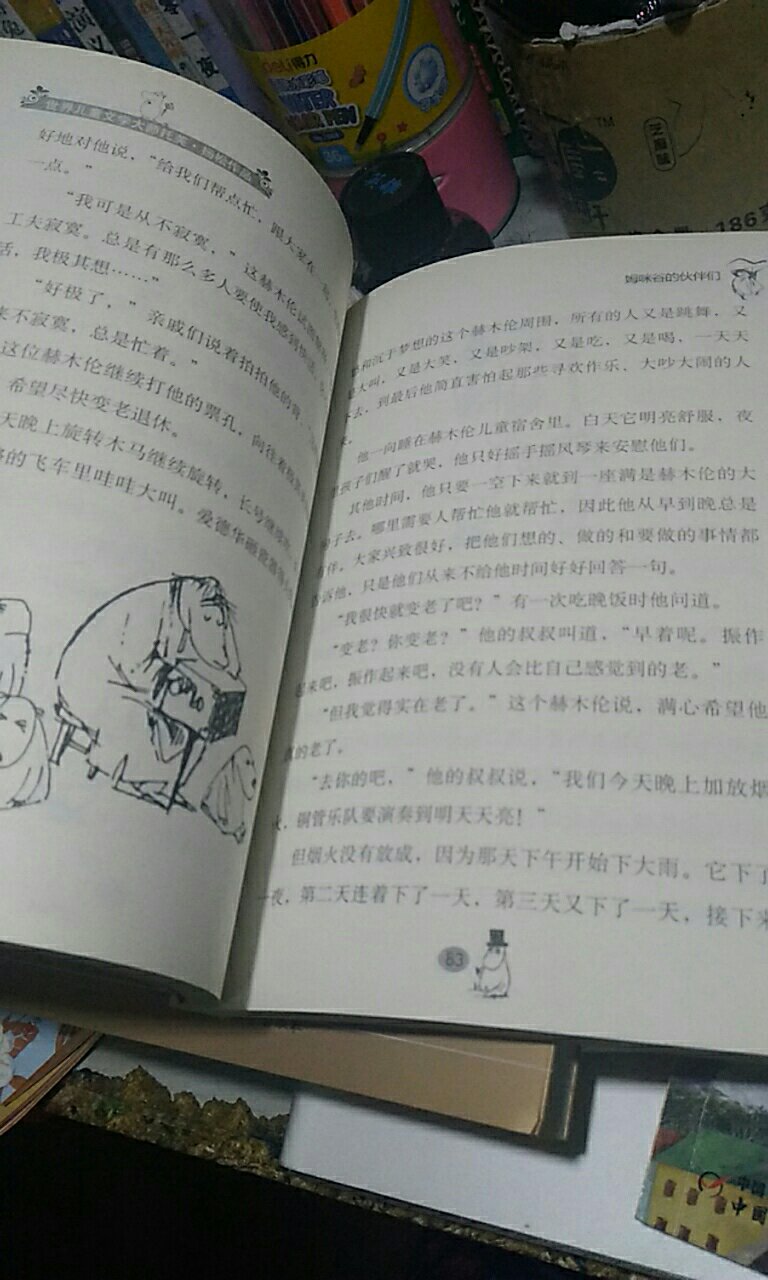 世界儿童文学大师托芙·杨松作品
好地对他说，“给我们帮点忙，跟大家在一
一点。”
“我可是从不寂寞，”这赫木伦
工夫寂寞。总是有那么多人要使我感到
活，我极其想……”
“好极了，”亲戚们说着拍拍他的背，
来不寂寞，总是忙着。”
这位赫木伦继续打他的票孔，向往着
希望尽快变老退休。
天晚上旋转木马继续旋转，长号继续
的飞车里哇哇大叫。爱德华
姆咪谷的伙伴们
和沉于梦想的这个赫木伦周围，所有的人又是跳舞，又
是大叫，又是大笑，又是吵架，又是吃，又是喝，一天天
去，到最后他简直害怕起那些寻欢作乐、大吵大闹的人
他一向睡在赫木伦儿童宿舍里。白天它明亮舒服，夜
孩子们醒了就哭，他只好摇手摇风琴来安慰他们。
其他时间，他只要一空下来就到一座满是赫木伦的大
子去。哪里需要人帮忙他就帮忙，因此他从早到晚总是
有伴，大家兴致很好，把他们想的、做的和要做的事情都
告诉他，只是他们从来不给他时间好好回答一句。
“我很快就变老了吧？”有一次吃晚饭时他问道。
“变老？你变老？”他的叔叔叫道，“早着呢。振作
起来吧，振作起来吧，没有人会比自己感觉到的老。”
“但我觉得实在老了。”这个赫木伦说，满心希望他
真的老了。
“去你的吧，”他的叔叔说，“我们今天晚上加放烟
火，铜管乐队要演奏到明天天亮！”
但烟火没有放成，因为那天下午开始下大雨。它下了
一夜，第二天连着下了一天，第三天又下了一天，接下来
83
deli得力
186
中国
中国